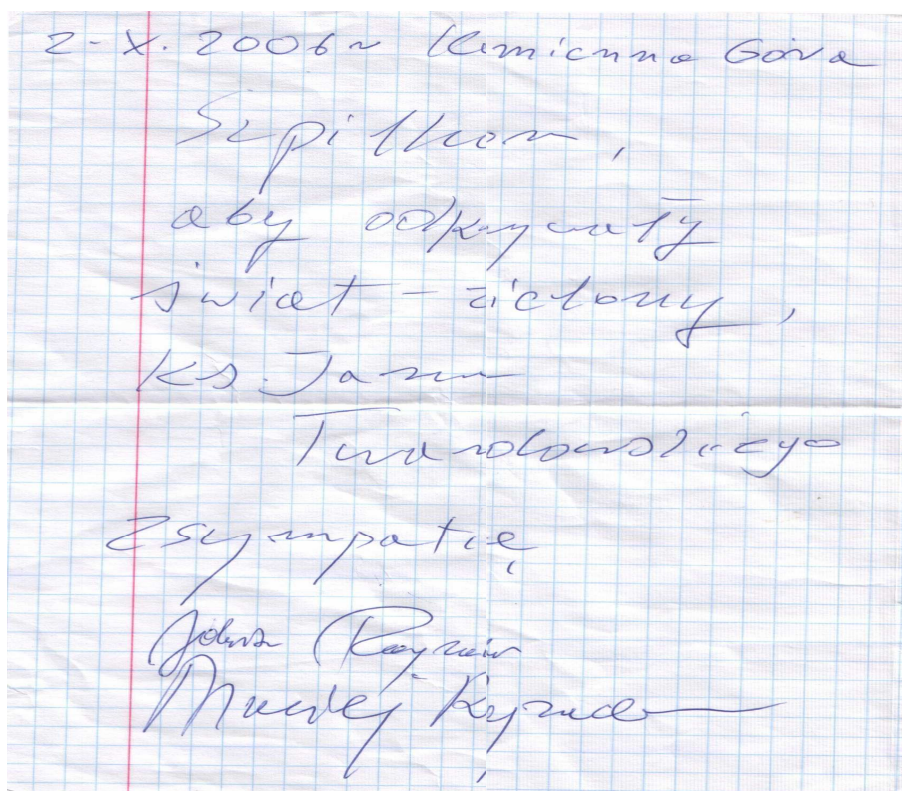 2-X.2006r Kamienna Góra
Szpilkom,
aby odkrywały
świat - zielony,
ks. Jana
Twardowskiego
Z sympatią
Maciej